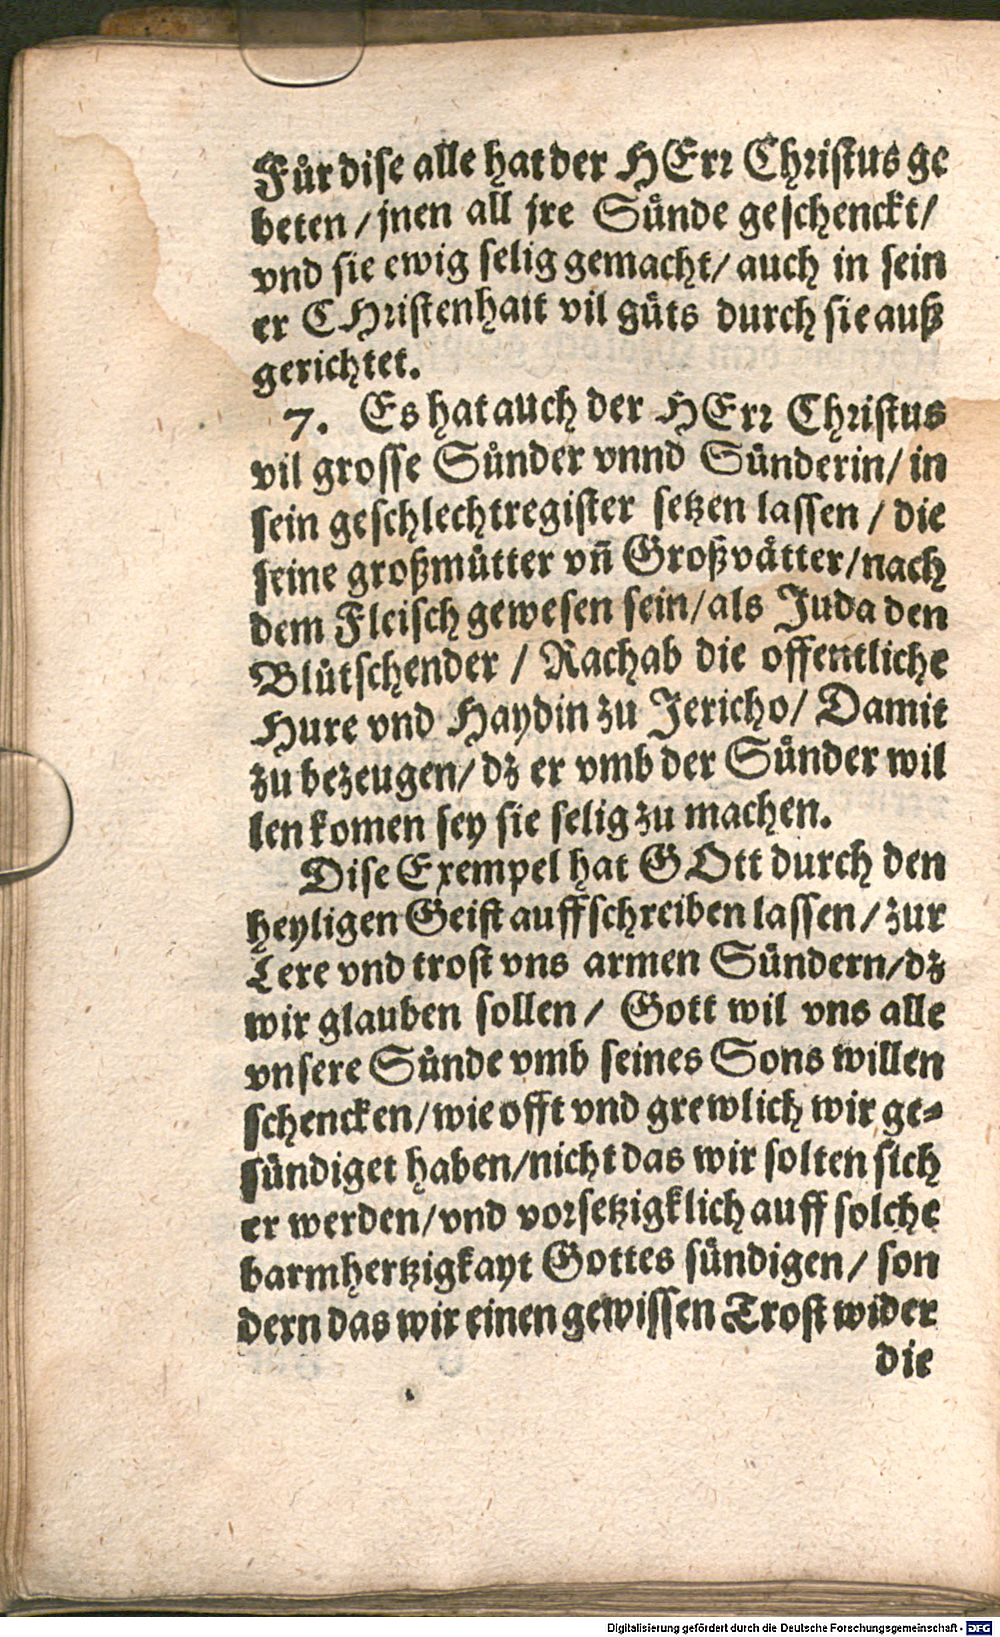 Fuͤr dise alle hat der HErr Christus ge
beten / jnen all jre Suͤnde geschenckt /
vnd sie ewig selig gemacht / auch in sein
er CHristenhait vil guͤts durch sie auß
gerichtet.
7. Es hat auch der HErr Christus
vil grosse Suͤnder vnnd Suͤnderin / in
sein geschlechtregister setzen lassen / die
seine großmuͤtter vñ Großvaͤtter / nach
dem Fleisch gewesen sein / als Juda den
Bluͤtschender / Rachab die offentliche
Hure vnd Haydin zu Jericho / Damit
zu bezeugen / dz er vmb der Suͤnder wil
len komen sey sie selig zu machen.
Dise Exempel hat GOtt durch den
heyligen Geist auffschreiben lassen / zur
Lere vnd trost vns armen Suͤndern / dz
wir glauben sollen / Gott wil vns alle
vnsere Suͤnde vmb seines Sons willen
schencken / wie offt vnd grewlich wir ge-
suͤndiget haben / nicht das wir solten sich
er werden / vnd vorsetzigklich auff solche
barmhertzigkayt Gottes suͤndigen / son
dern das wir einen gewissen Trost wider
die
Digitalisierung gefördert durch die Deutsche Forschungsgemeinschaft - DFG